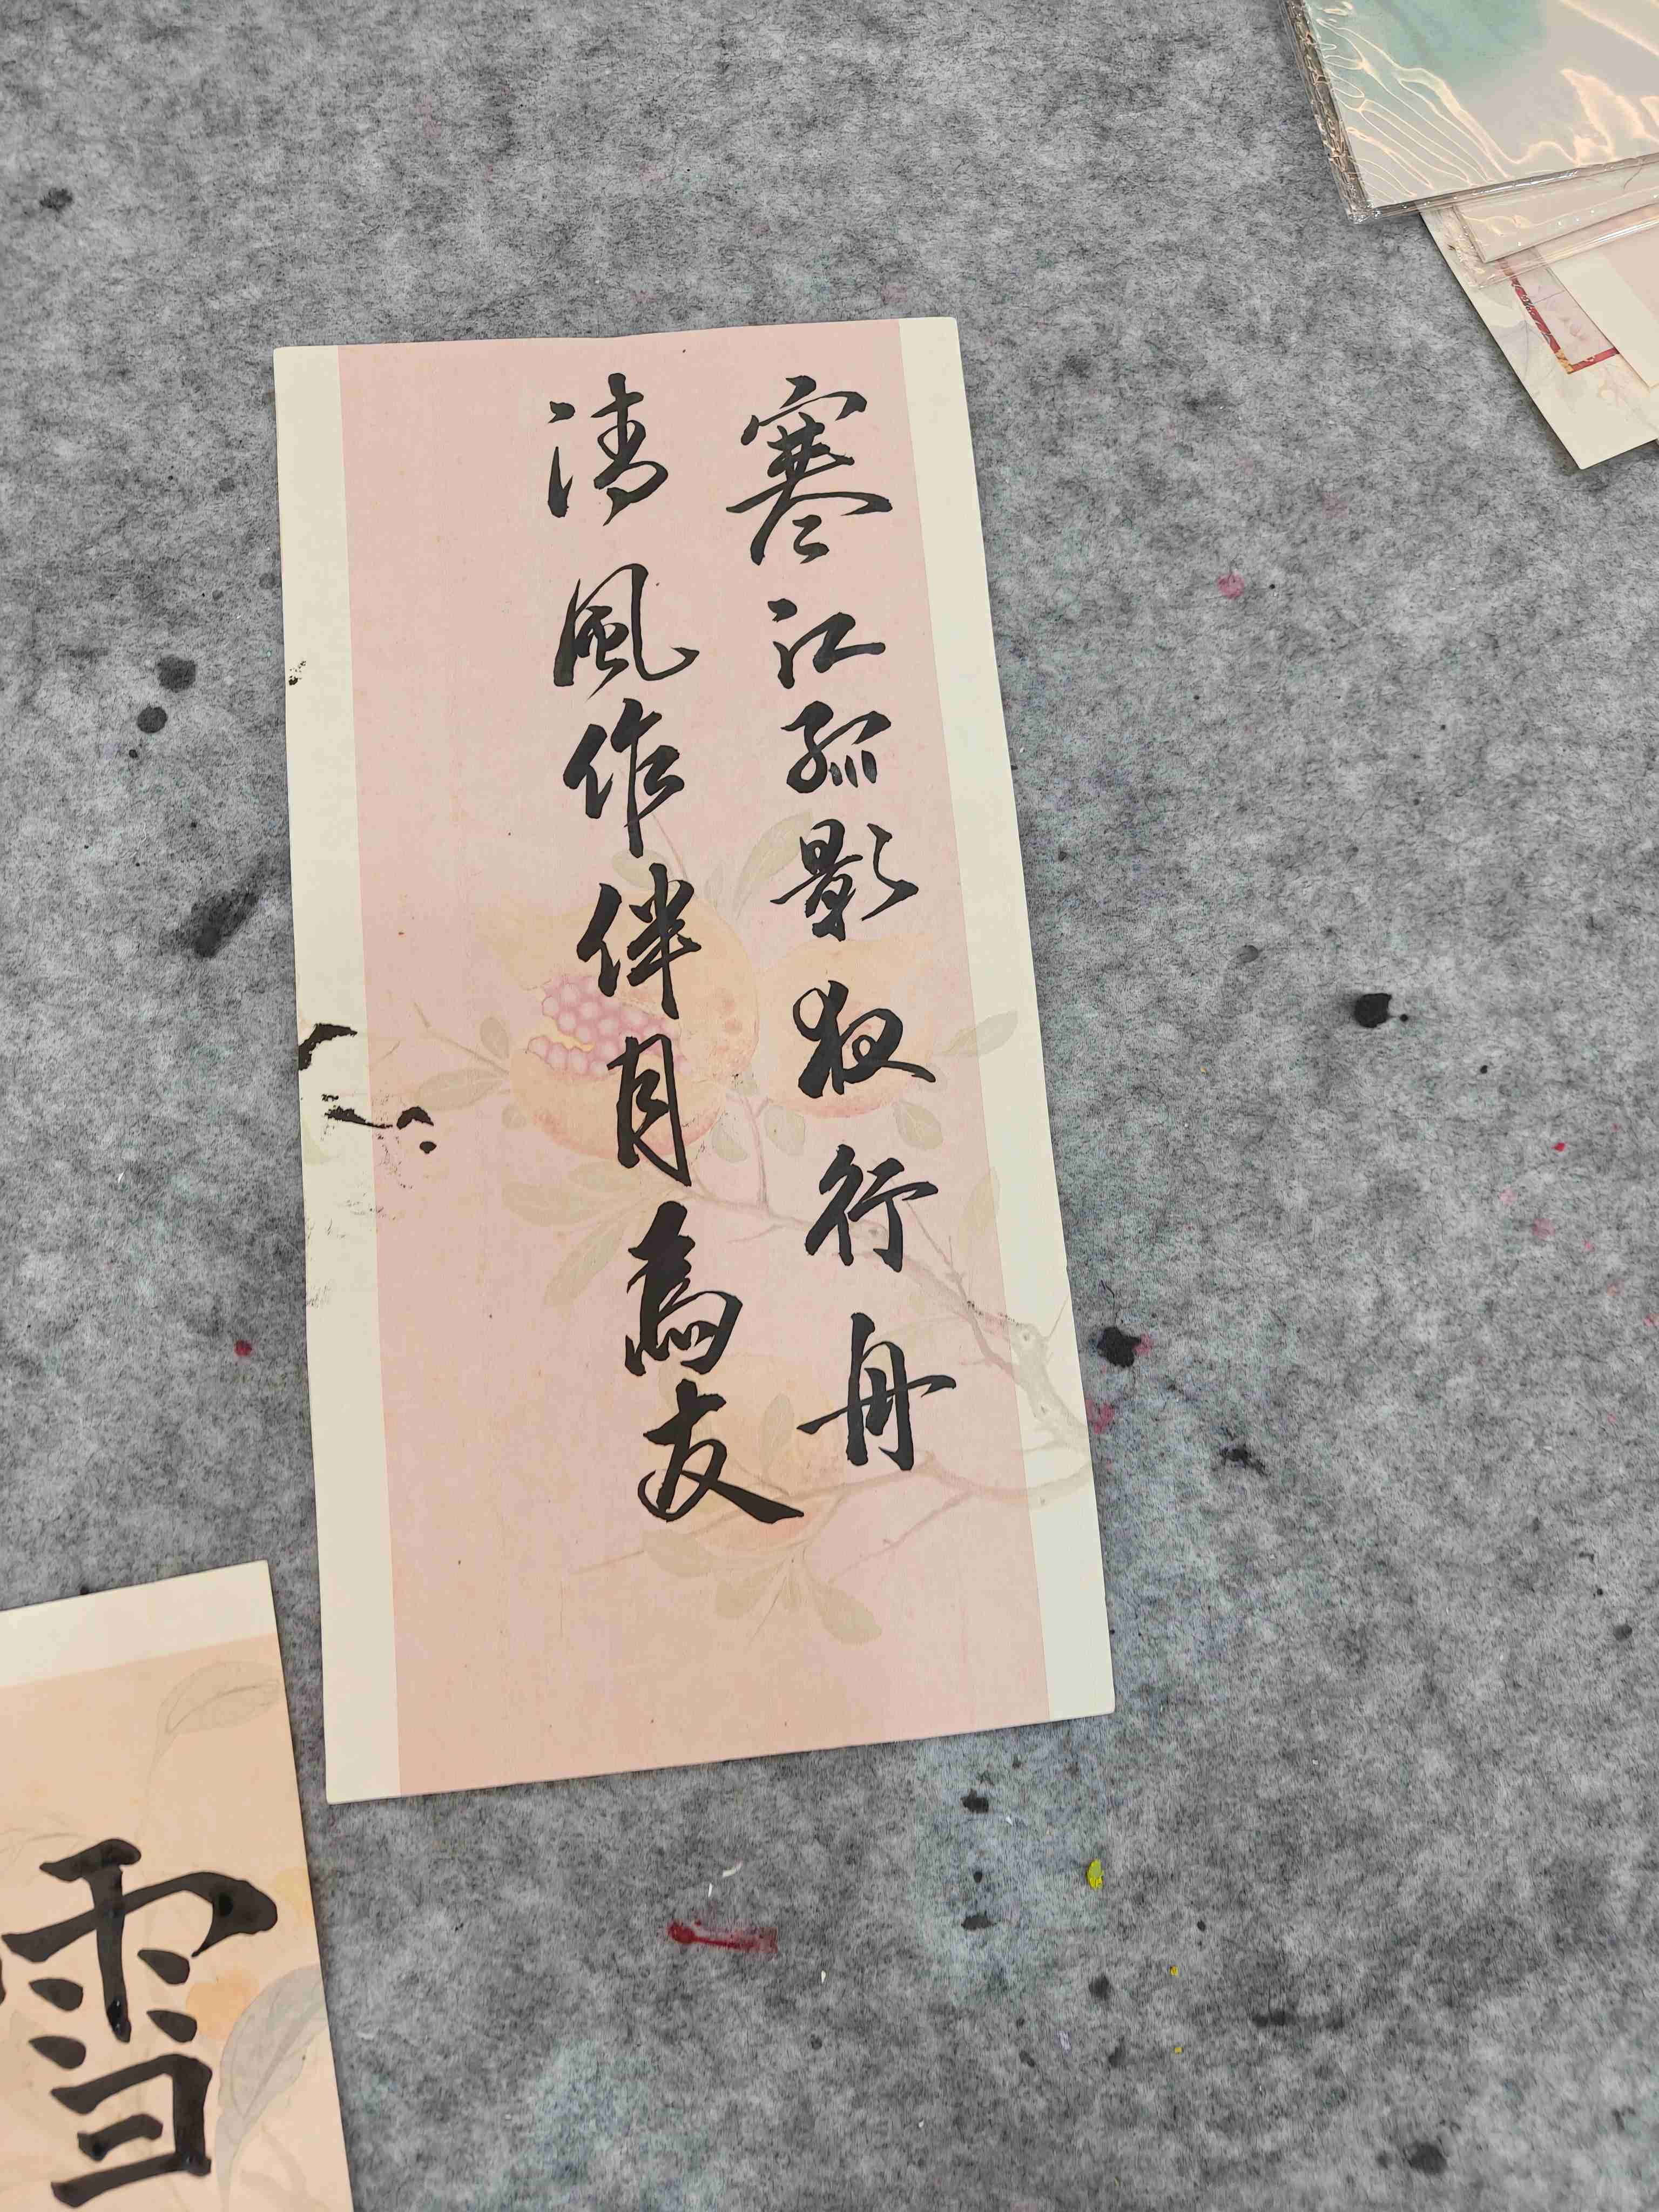 寒江孤影夜行舟
清風作伴月為友
雪